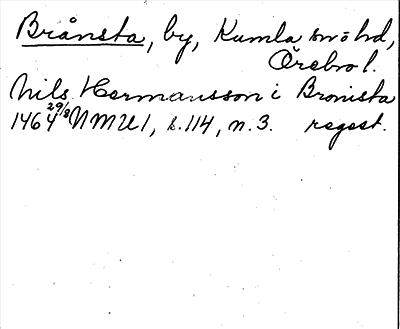 Brånsta, by, Kumla sn o hd,
Örebro l.
Nils Hermansson i Bronista
1464 29/8 NMU 1, s. 114, n. 3. regest.